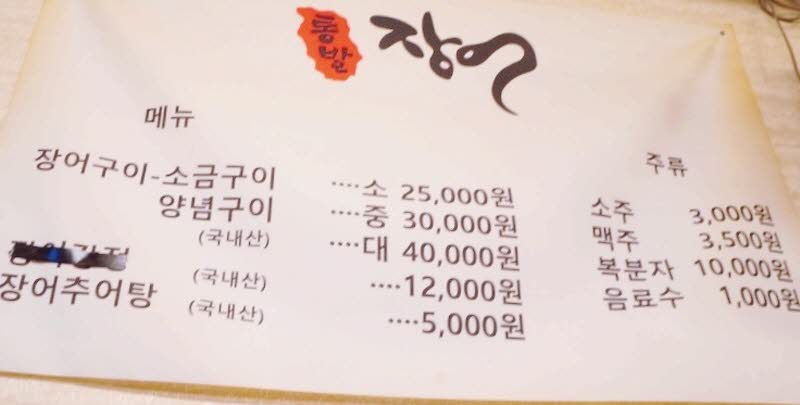 통발
장어
메뉴
장어구이-소금구이 ····소 25,000원
양념구이 ····중 30,000원
(국내산) ····대 40,000원
(국내산) ····12,000원
장어추어탕 (국내산) ····5,000원
주류
소주 3,000원
맥주 3,500원
복분자 10,000원
음료수 1,000원